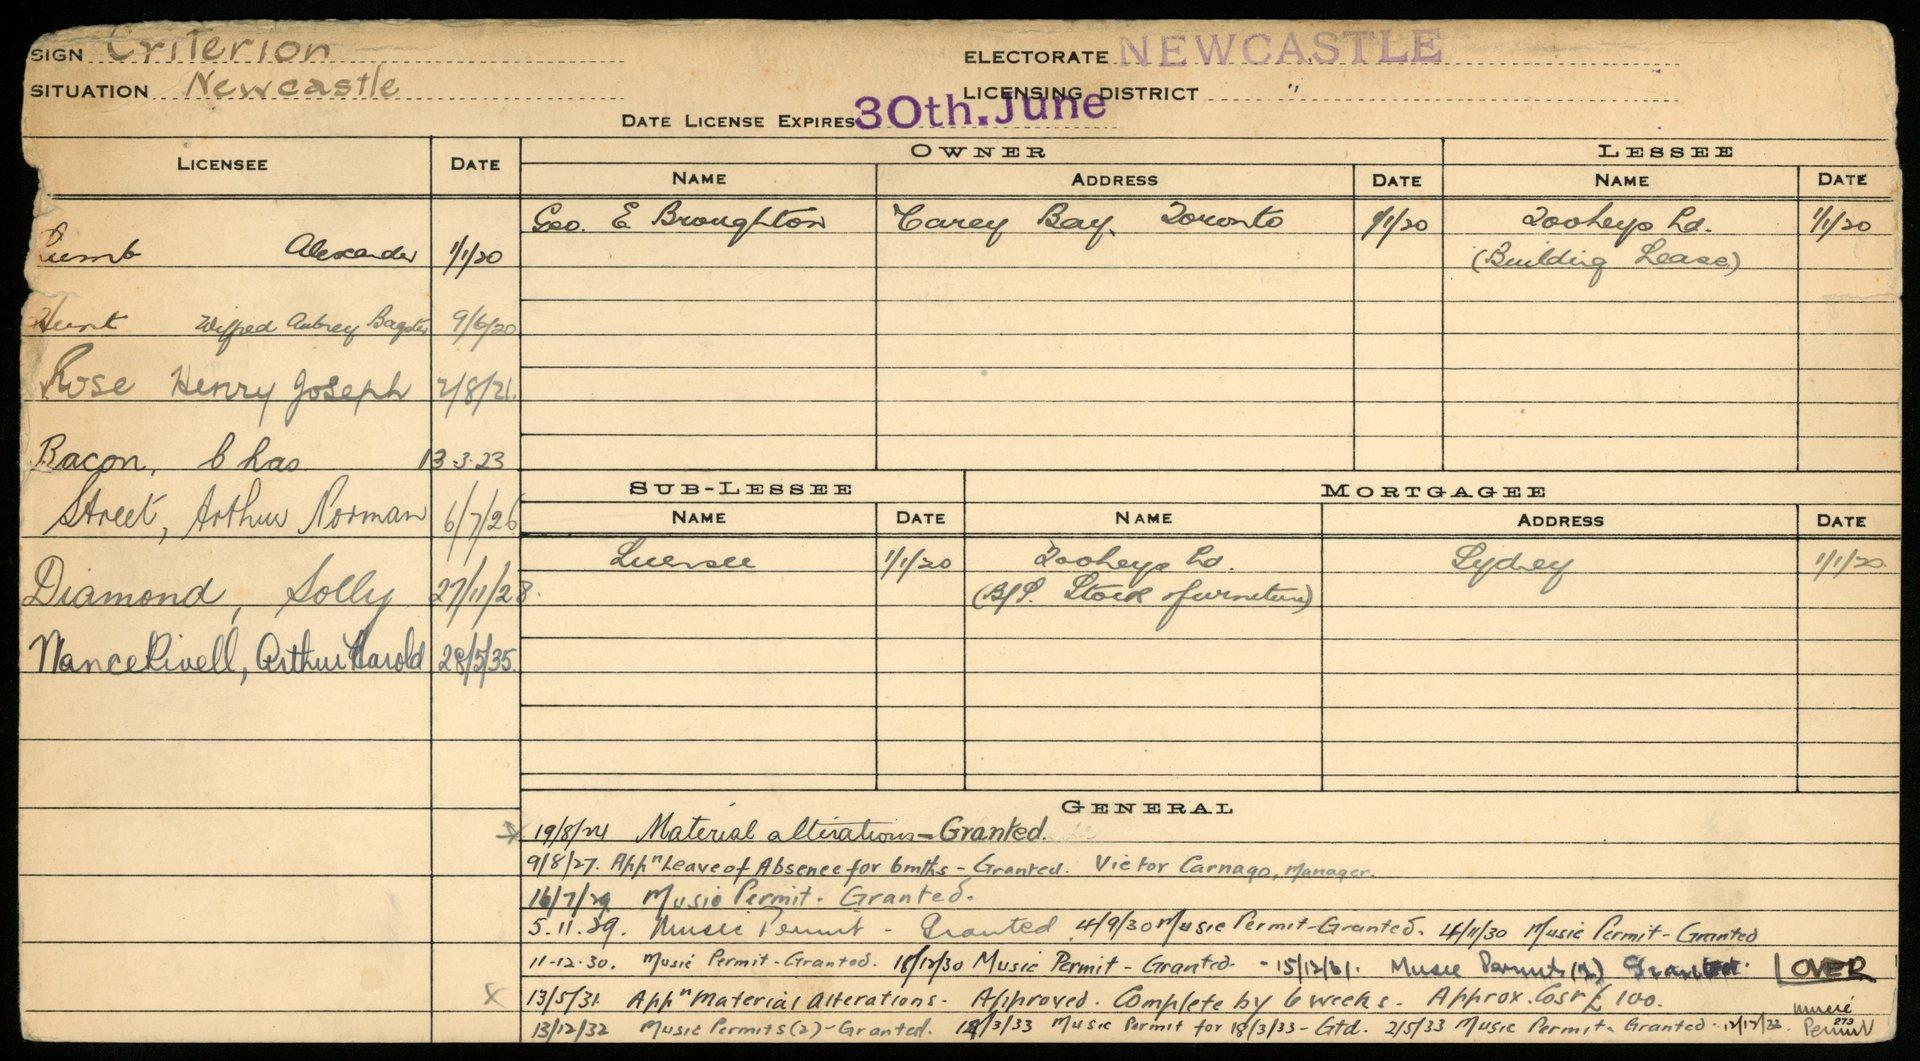 SIGN Criterion
SITUATION Newcastle
ELECTORATE NEWCASTLE
LICENSING DISTRICT "
DATE LICENSE EXPIRES 30th. June
LICENSEE DATE
OWNER
NAME ADDRESS DATE
LESSEE
NAME DATE
Alexander 1/1/20
Hunt Wilfred Aubrey Bagster 9/6/20
Rose Henry Joseph 2/8/21.
Bacon, Chas 13.3.23
Street, Arthur Norman 6/7/26
Diamond, Solly 27/11/28.
Nancekivell, Arthur Harold 28/5/35.
Geo. E Broughton Carey Bay. Toronto 1/1/20 Tooheys Ld. 1/1/20
(Building Lease)
SUB-LESSEE
NAME DATE
MORTGAGEE
NAME ADDRESS DATE
Licensee 1/1/20 Tooheys Ld. Sydney 1/1/20
(B/S. Stock & furniture)
GENERAL
x 19/8/24 Material alterations - Granted.
9/8/27. Appn Leave of Absence for 6mths - Granted. Victor Carnago, Manager.
16/7/29 Music Permit. Granted.
5.11.29. Music Permit - Granted 4/9/30 Music Permit - Granted. 4/11/30 Music Permit - Granted
11-12-30. Music Permit - Granted. 18/12/30 Music Permit - Granted. - 15/12/31. Music Permits (2) Granted. OVER
x 13/5/31 Appn Material Alterations. Approved. Complete by 6 weeks. Approx. Cost £100.
13/12/32 Music Permits (2) - Granted. 18/3/33 Music Permit for 18/3/33 - Gtd. 2/5/33 Music Permit. Granted. 12/12/33. Music Permit 273